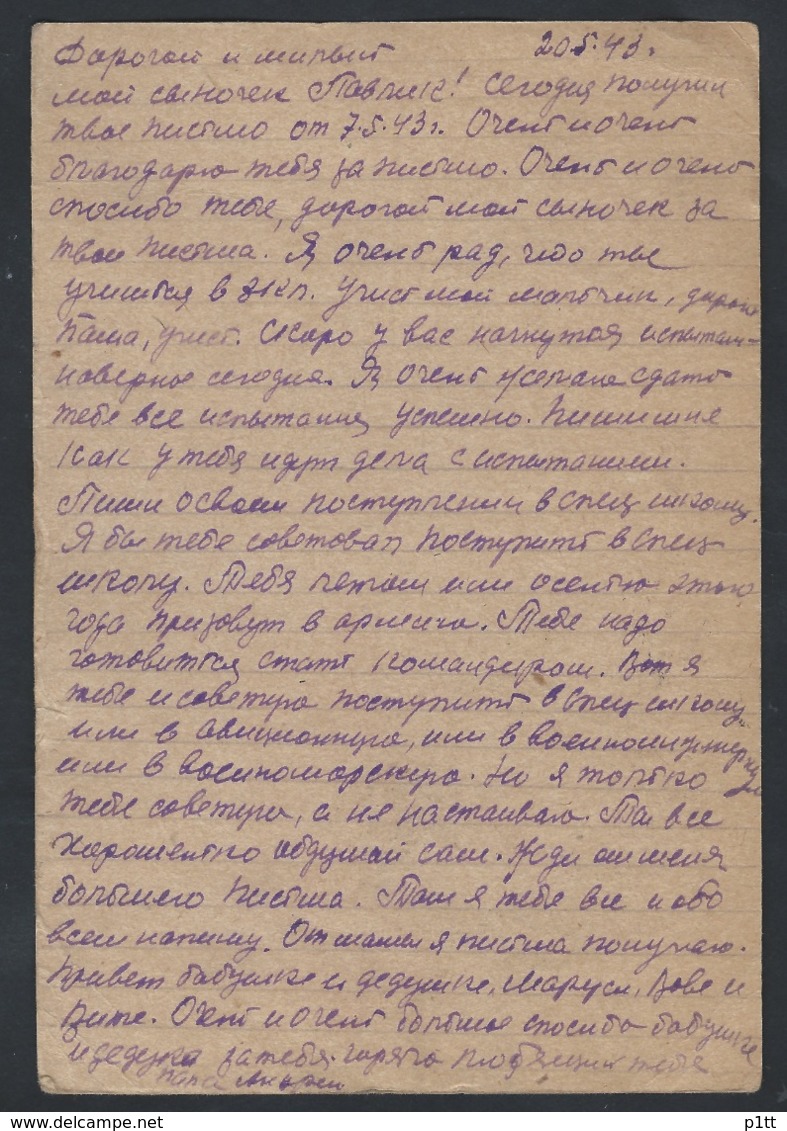 Дорогой и милый 20.5.43г.
мой сыночек Павлик! Сегодня получил
твое письмо от 7.5.43г. Очень и очень
благодарю тебя за письмо. Очень и очень
спосибо тебе, дорогой мой сыночек за
твои письма. Я очень рад, что ты
учишься в
Учись мой мальчик, дорогой
Паша, учись. Скоро у вас начнутся испытан-
наверное сегодня. Я очень желаю сдать
тебе все испытания успешно. Пиши мне
как у тебя идут дела с испытанием.
Пиши о своем поступлении в спец школу.
Я бы тебе советовал поступить в спец-
школу. Тебя летом или осенью этого
года призовут в армию. Тебе надо
готовиться стать командиром. Вот я
тебе и советую поступить в спец школу
или в авиционную, или в военноинженерную
или в военноморскую. Но я только
тебе советую, а не настаиваю. Ты все
хорошенько обдумай сам. Жди от меня
большого письма. Там я тебе все и обо
всем напишу. От мамы я письма получаю.
Привет бабушке и дедушке, Марусе, Вове и
Вите. Очень и очень большое спосибо бабушке
и дедушке за тебя. горячо любящий тебя
папа Андрей
p1tt